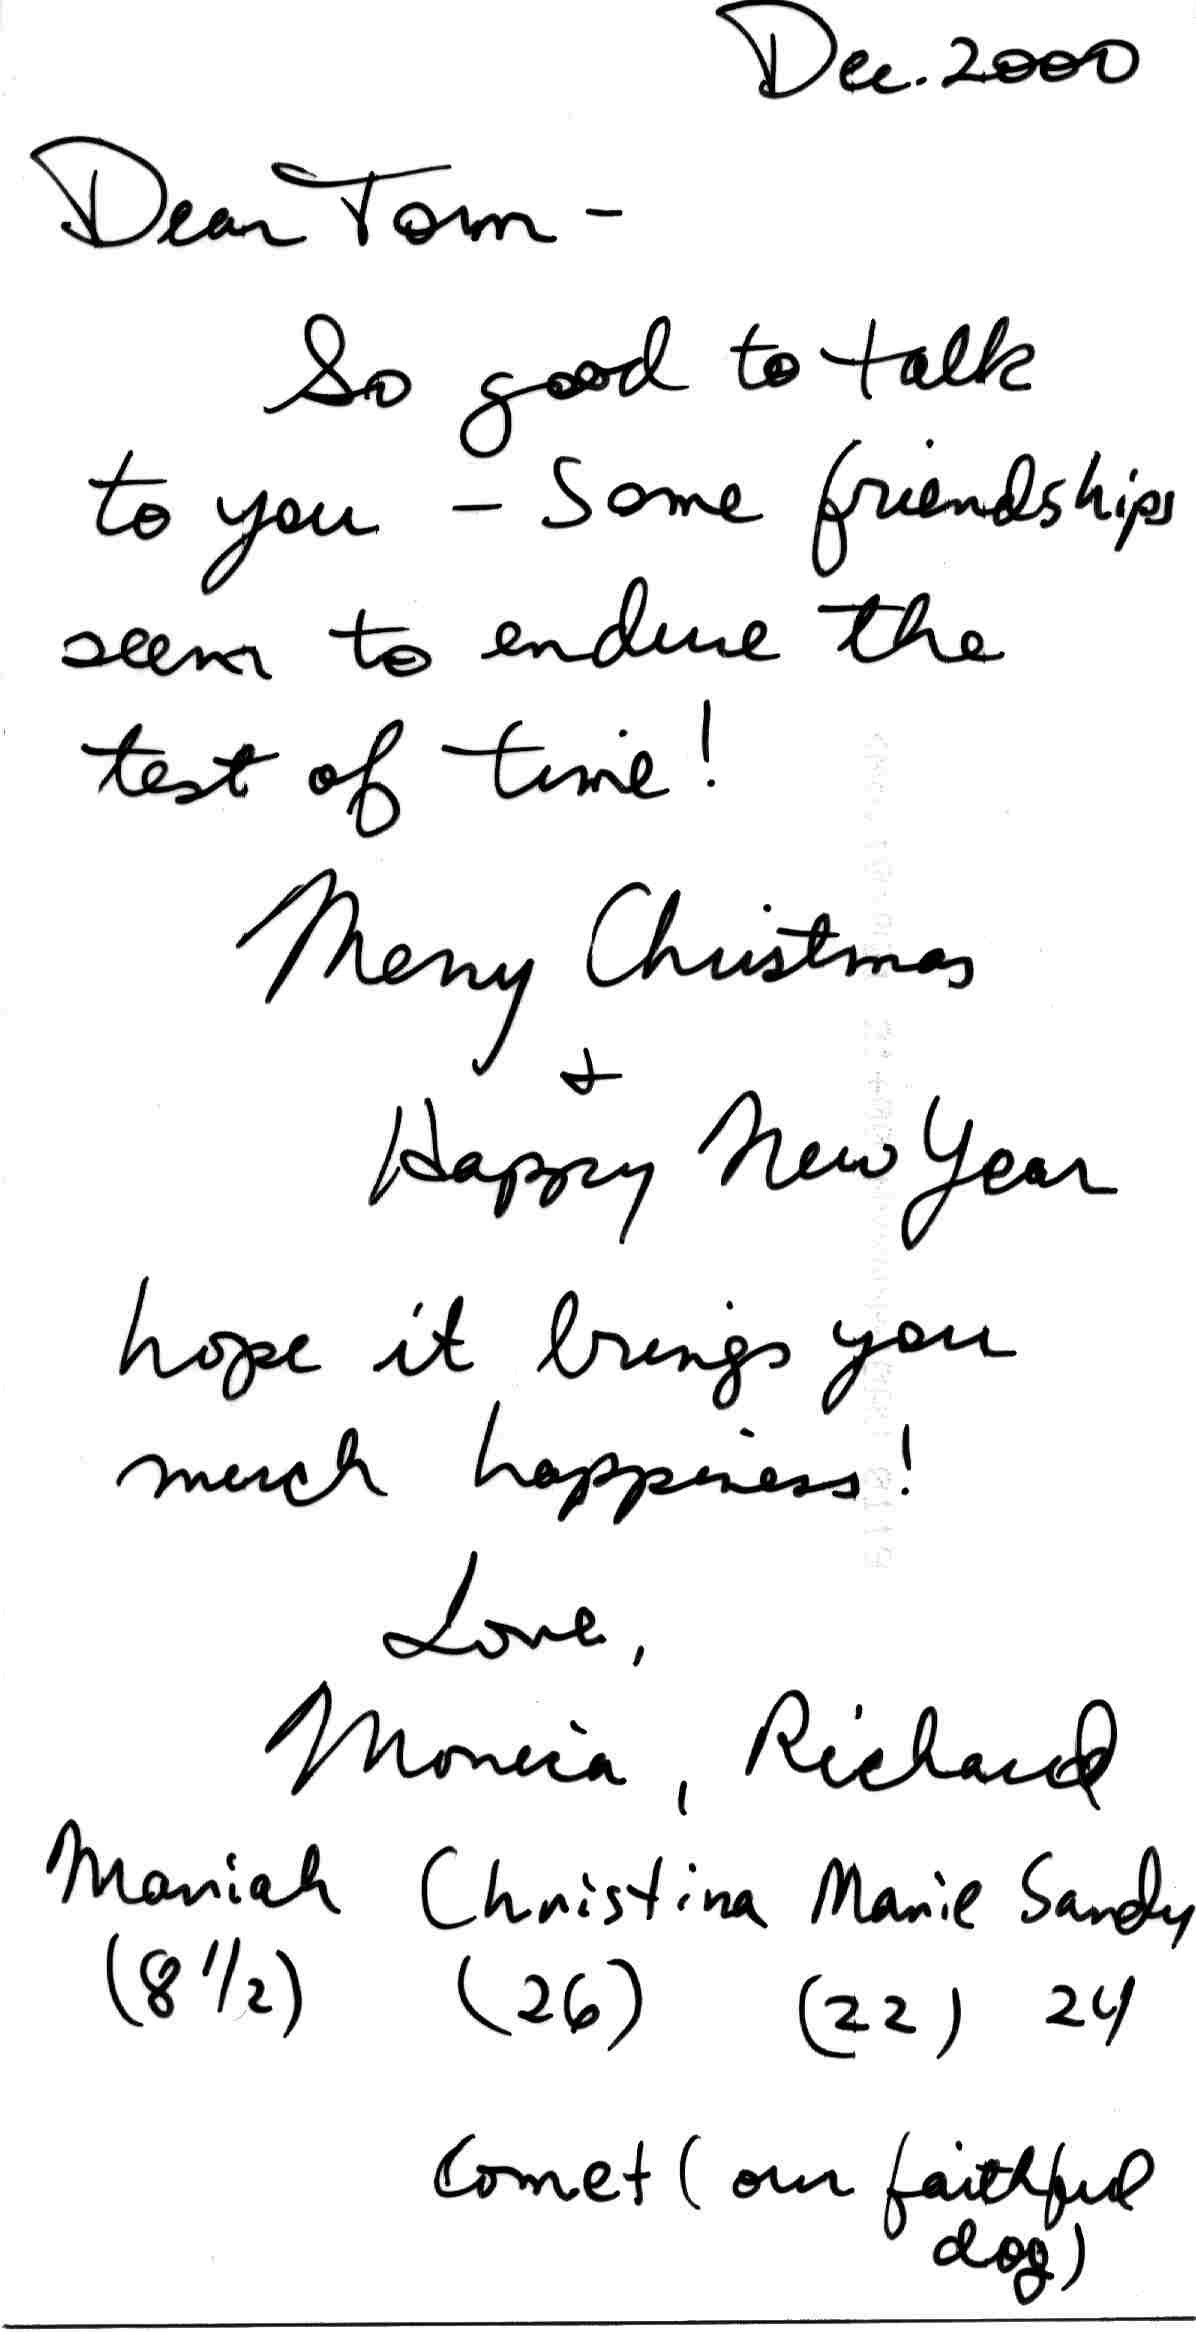 Dec. 2000
Dear Tom -
So good to talk
to you - Some friendships
seem to endure the
test of time!
Merry Christmas
+
Happy New Year
hope it brings you
much happiness!
Love,
Monica, Richard
Mariah Christina Marie Sandy
(8 1/2) (26) (22) 24
Comet (our faithful
dog)